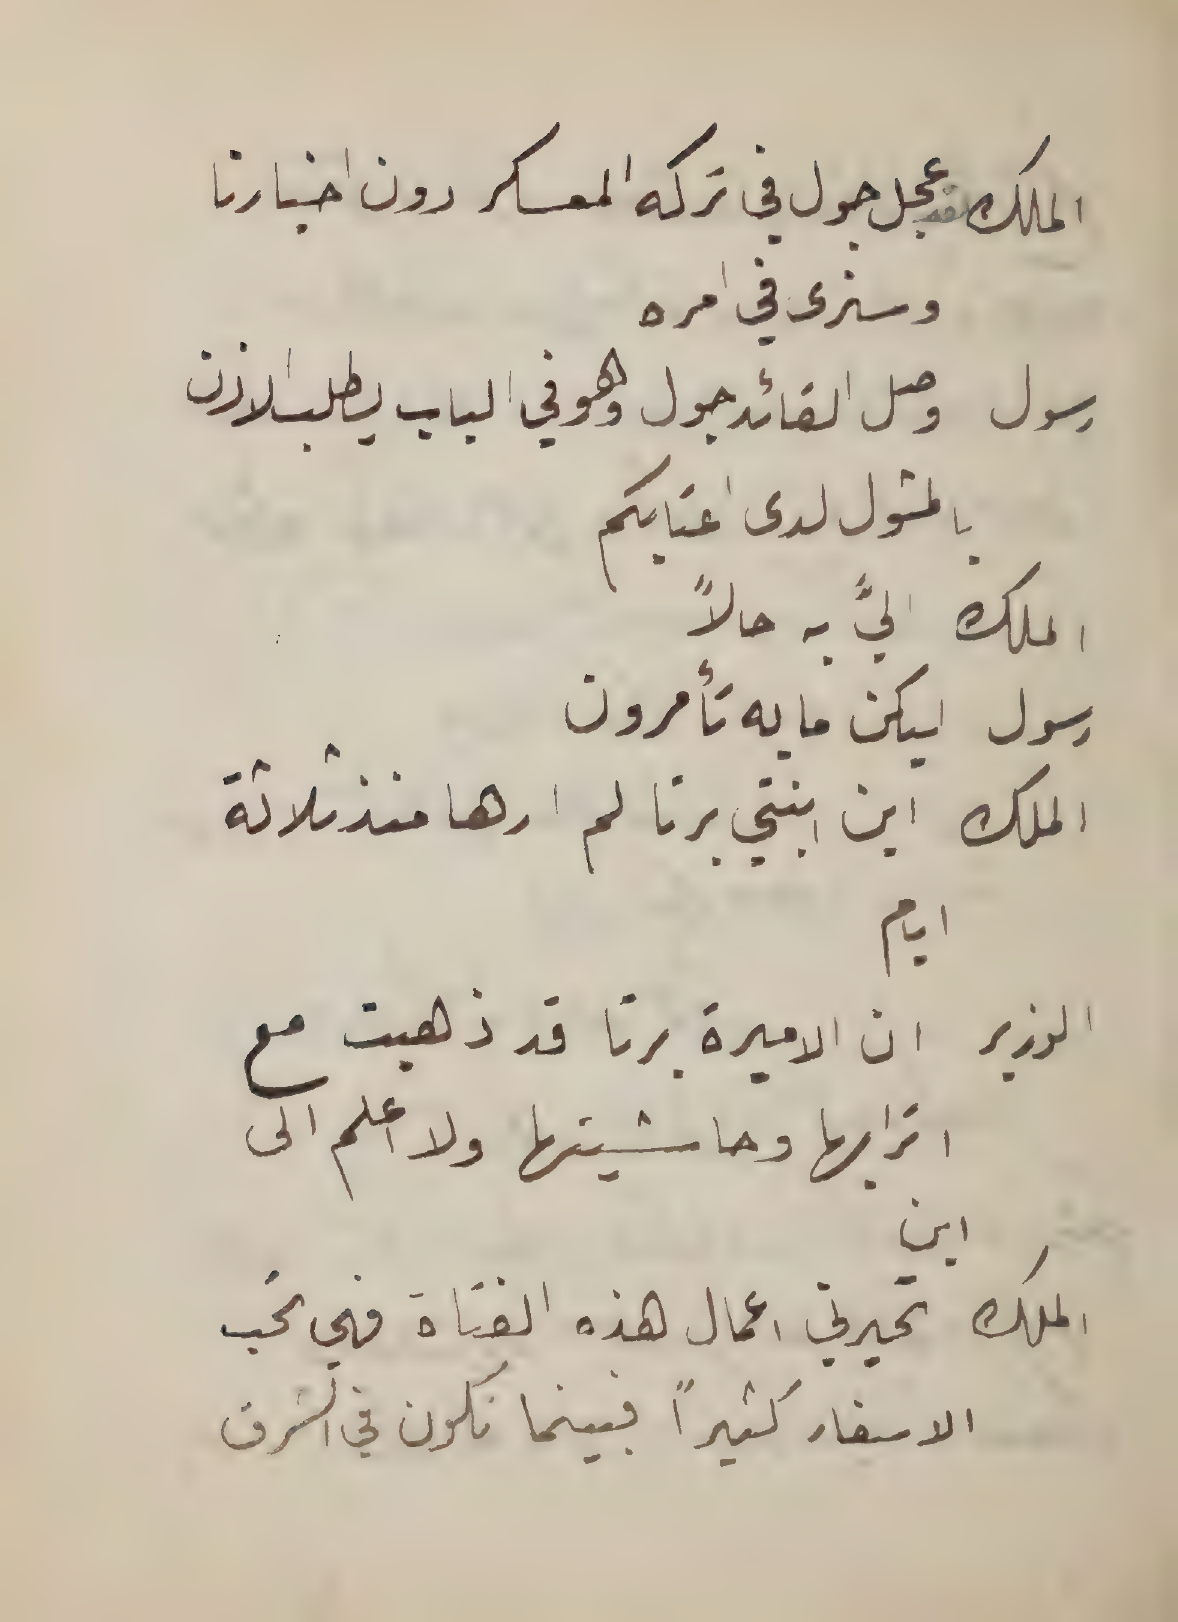 الملك لقد عجل جول في تركه المعسكر دون اخبارنا
وسنرى في امره
رسول وصل القائد جول وهو في الباب يطلب الاذن
بالمثول لدى اعتابكم
الملك اليَّ به حالاً
رسول ليكن ما به تأمرون
الملك اين ابنتي برتا لم ارها منذ ثلاثة
ايام
الوزير ان الاميرة برتا قد ذهبت مع
اترابها وحاشيتها ولا اعلم الى
اين
الملك تحيرني اعمال هذه الفتاة فهي تحب
الاسفار كثيراً فبينما تكون في الشرق